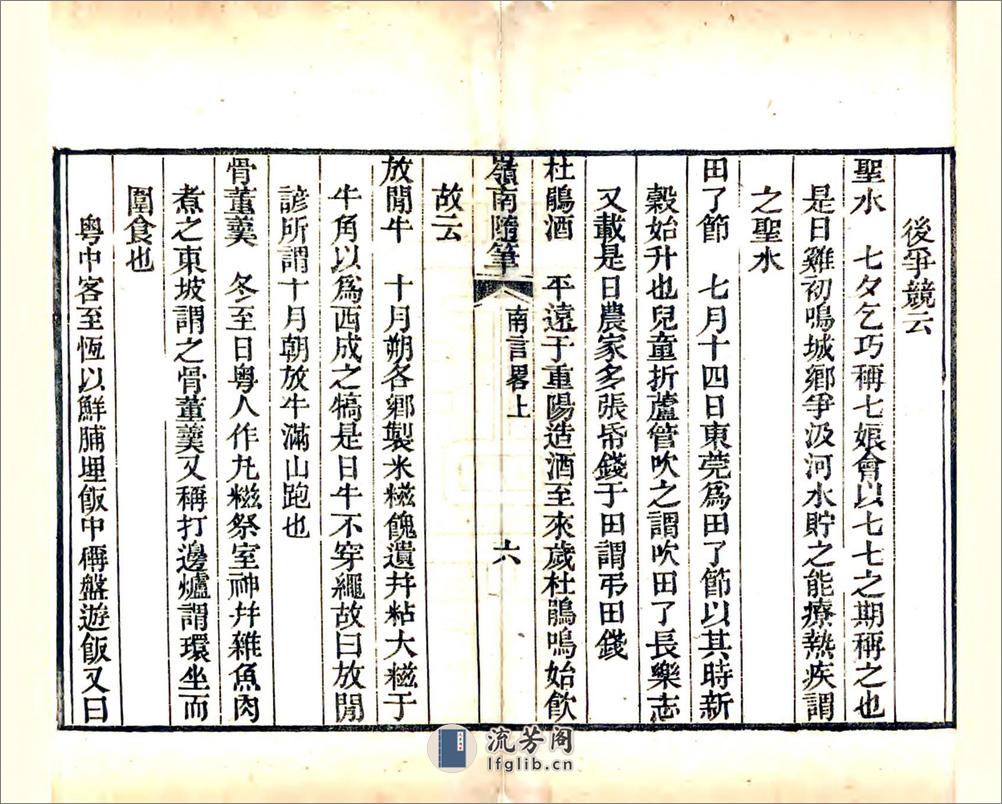 後爭競云
聖水　七夕乞巧稱七娘會以七七之期稱之也
是日雞初鳴城鄉爭汲河水貯之能療熱疾謂
之聖水
田了節　七月十四日東莞爲田了節以其時新
穀始升也兒童折蘆管吹之謂吹田了長樂志
又載是日農家多張帋錢于田謂弔田錢
杜鵑酒　平遠于重陽造酒至來歲杜鵑鳴始飮
故云
嶺南隨筆　南言畧上　六
放閒牛　十月朔各鄉製米糍餽遺幷粘大糍于
牛角以爲西成之犒是日牛不穿繩故曰放閒
諺所謂十月朝放牛滿山跑也
骨董羹　冬至日粤人作丸糍祭室神幷雜魚肉
煮之東坡謂之骨董羹又稱打邊爐謂環坐而
圍食也
粤中客至恆以鮮脯埋飯中稱盤遊飯又曰
流芳阁
lfglib.cn